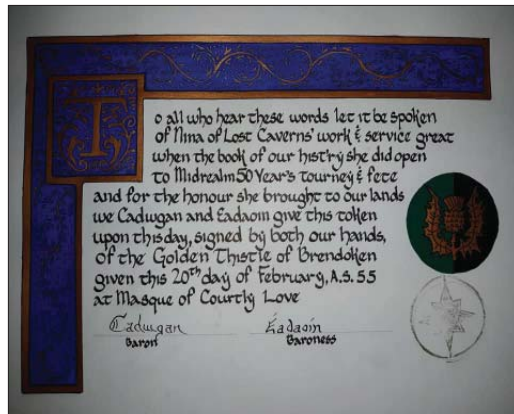 To all who hear these words let it be spoken
of Nina of Lost Caverns' work & service great
when the book of our hist'ry she did open
to Midrealm 50 Year's tourney & fete
and for the honour she brought to our lands
we Cadwgan and Eadaoin give this token
upon this day, signed by both our hands,
of the Golden Thistle of Brendoken
given this 20th day of February, A.S. 55
at Masque of Courtly Love
Cadwgan Éadaoin
Baron Baroness